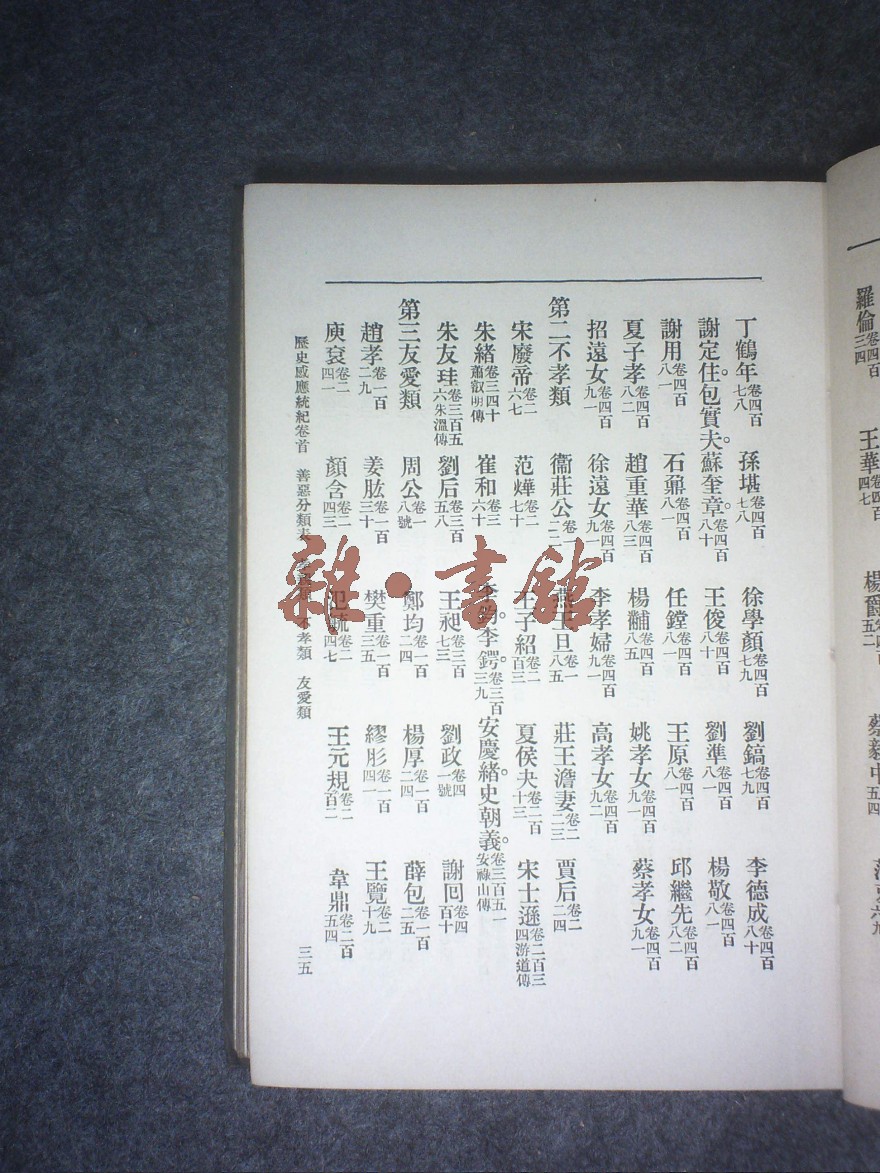 丁鶴年卷四百七八 孫堪卷四百七八 徐學顏卷四百七九 劉鎬卷四百七九 李德成卷四百八十
謝定住。包實夫。蘇奎章卷四百八十 王俊卷四百八十 劉準卷四百八一 楊敬卷四百八一
謝用卷四百八一 石鼐卷四百八一 任鏜卷四百八一 王原卷四百八一 邱繼先卷四百八二
夏子孝卷四百八二 趙重華卷四百八三 楊黼卷四百八五 姚孝女卷四百九一 蔡孝女卷四百九一
招遠女卷四百九一 徐遠女卷四百九一 李孝婦卷四百九一 高孝女卷四百九二
第二不孝類 衞莊公卷一二二 燕王旦卷一八五 莊王澹妻卷二二三 賈后卷二二四
宋廢帝卷二六七 范燁卷二七十 王子紹卷二百三 夏侯夬卷二百十三 宋士遜卷二百三四游道傳
朱緒卷三四十蕭叡明傳 崔和卷三六十 李鈞。李鍔。卷三百三九 安慶緒。史朝義。卷三百五一安祿山傳
朱友珪卷三百五六朱溫傳 劉后卷三百五八 王昶卷三百七三 劉政卷四一號 謝囘卷四百十
第三友愛類 周公卷一八號 鄭均卷一百二四 楊厚卷一百二四 薛包卷一百二五
趙孝卷一百二九 姜肱卷一百三十 樊重卷一百三五 繆肜卷一百四一 王覽卷二十九
庾袞卷二四一 顏含卷二四三 氾毓卷二四七 王元規卷二百二 韋鼎卷二百五四
歷史感應統紀卷首 善惡分類表 不孝類 友愛類 三五
羅倫卷四百三四 王華卷四百四七 楊爵卷四百五二 蔡毅中五四 六九
雜·書館